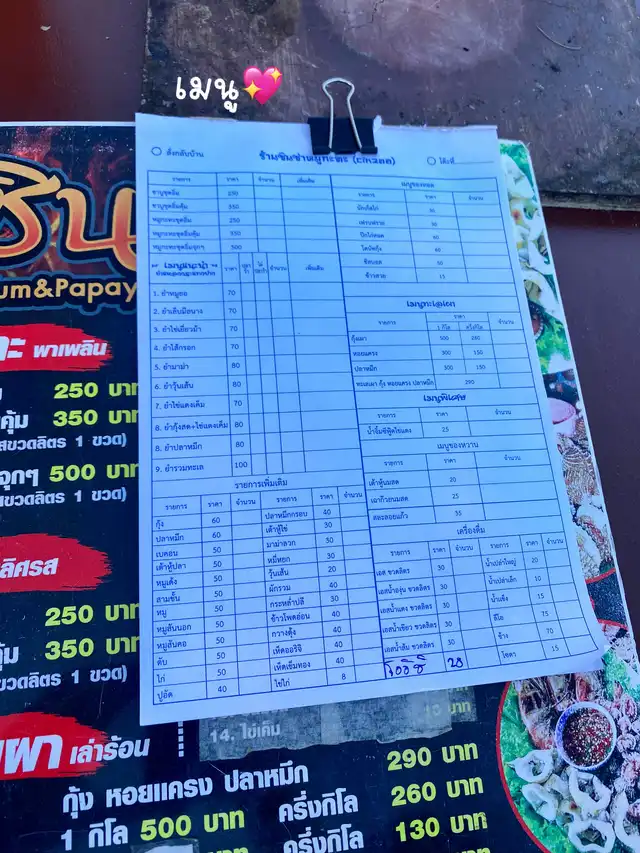 เมนู
สั่งกลับบ้าน
ร้านชินชาบูหมูกะทะ
โต๊ะที่
รายการ ราคา จำนวน เพิ่มเติม
ชาบูชุดอิ่ม 250
ชาบูชุดอิ่มคุ้ม 350
หมูกะทะชุดอิ่ม 250
หมูกะทะชุดอิ่มคุ้ม 350
หมูกะทะชุดอิ่มจุกๆ 500
เมนูแนะนำ ราคา จำนวน เพิ่มเติม
1. ยำหมูยอ 70
2. ยำเล็บมือนาง 70
3. ยำไข่เยี่ยวม้า 70
4. ยำไส้กรอก 70
5. ยำมาม่า 80
6. ยำวุ้นเส้น 80
7. ยำไข่แดงเค็ม 70
8. ยำกุ้งสด+ไข่แดงเค็ม 80
8. ยำปลาหมึก 80
9. ยำรวมทะเล 100
เมนูของทอด
รายการ ราคา จำนวน
นักเก็ตไก่
เฟรนฟราย
ปีกไก่ทอด 60
โดนัทกุ้ง 60
ชีสบอล 50
ข้าวสวย 15
เมนูทะเลเผา
รายการ ราคา จำนวน
1 กิโล ครึ่งกิโล
กุ้งเผา 500
หอยแครง 300 150
ปลาหมึก 300 150
รวมเผา กุ้ง หอยแครง ปลาหมึก 290
เมนูพิเศษ
รายการ ราคา จำนวน
น้ำจิ้มซีฟู้ดไข่แดง 25
เมนูของหวาน
รายการ ราคา จำนวน
เต้าหู้นมสด 20
เฉาก๊วยนมสด 25
สละลอยแก้ว 35
รายการเพิ่มเติม
รายการ ราคา จำนวน รายการ ราคา จำนวน
กุ้ง 60 ปลาหมึกกรอบ 40
ปลาหมึก 60 เต้าหู้ไข่ 30
เบคอน 50 มาม่าลวก 30
เต้าหู้ปลา 50 หมี่หยก 30
หมูเด้ง 50 วุ้นเส้น 20
สามชั้น 50 ผักรวม 40
หมู 50 กระหล่ำปลี 30
หมูสันนอก 50 ข้าวโพดอ่อน 40
หมูสันคอ 50 กวางตุ้ง 40
ตับ 50 เห็ดออรินจิ 40
ไก่ 50 เห็ดเข็มทอง 40
ปูอัด 40 ไข่ไก่ 8
เครื่องดื่ม
รายการ ราคา จำนวน น้ำเปล่าใหญ่ 20
เอส ขวดลิตร 30 น้ำเปล่าเล็ก 10
เอสน้ำองุ่น ขวดลิตร 30 น้ำแข็ง 15
เอสน้ำแดง ขวดลิตร 30 ลีโอ 75
เอสน้ำเขียว ขวดลิตร 30 ช้าง 70
เอสน้ำส้ม ขวดลิตร 30 โซดา 15
โออิชิ
ชิน
um&Papay
พาเพลิน
250 บาท
คุ้ม 350 บาท
ขวดลิตร 1 ขวด)
จุกๆ 500 บาท
ขวดลิตร 1 ขวด)
ลิศรส
250 บาท
คุ้ม 350 บาท
ขวดลิตร 1 ขวด)
14. ไข่เค็ม
เผา เล่าร้อน
กุ้ง หอยแครง ปลาหมึก 290 บาท
1 กิโล 500 บาท ครึ่งกิโล 260 บาท
ครึ่งกิโล 130 บาท